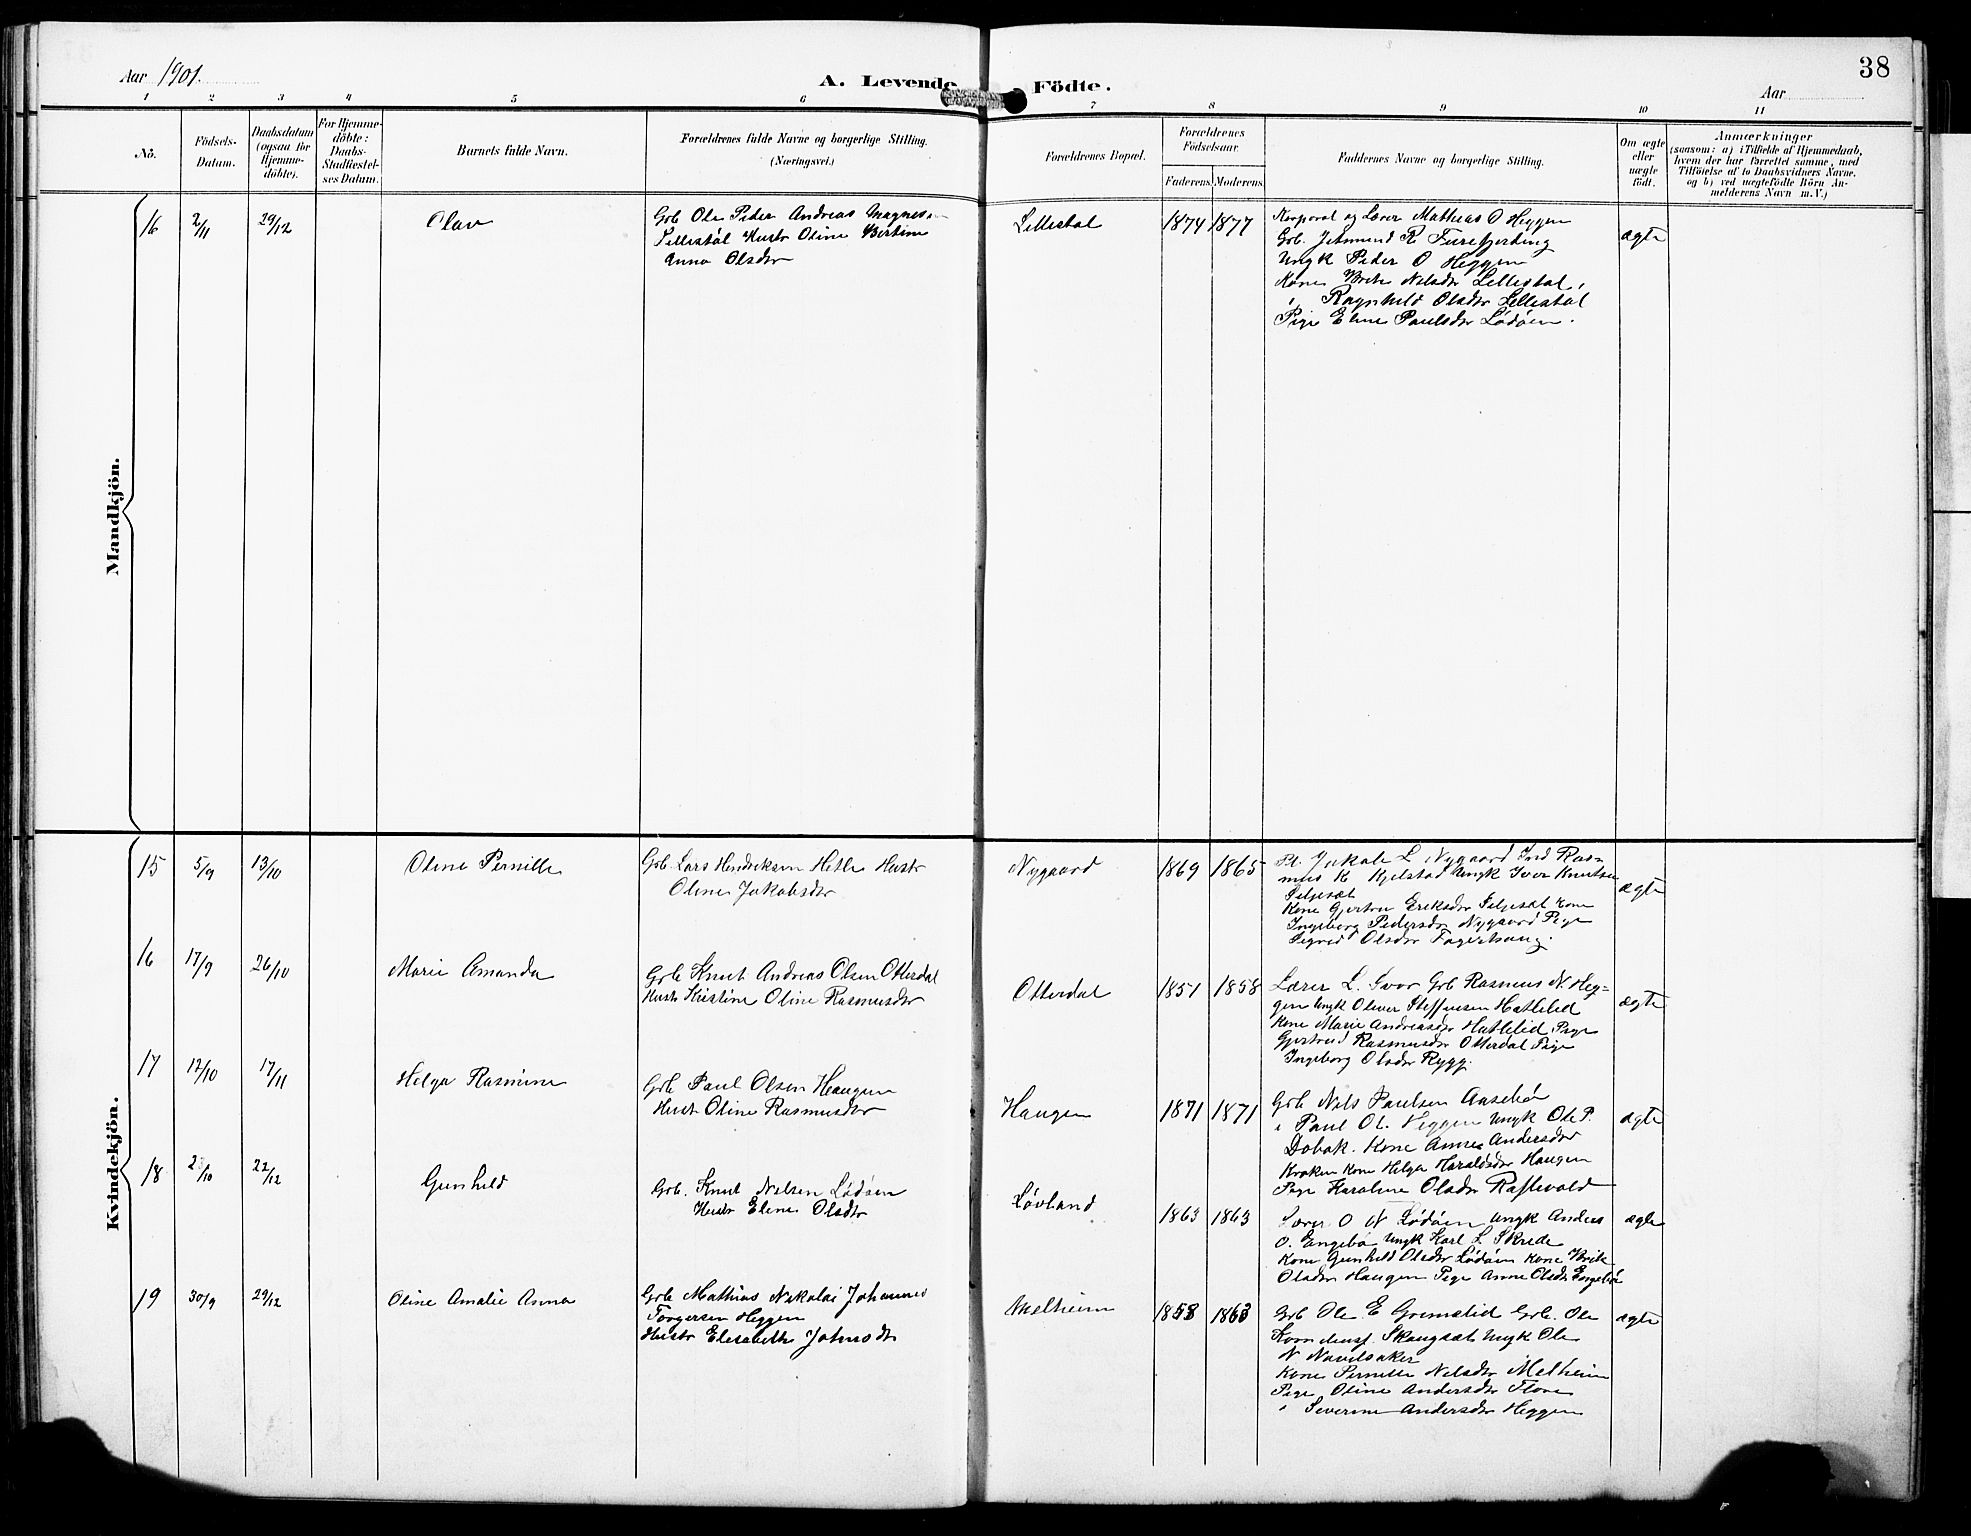 Aar 1901.
A. Levende Födte.
38
Aar
1 2 3 4 5 6 7 8 9 10 11
No.
Födsels-
Datum.
Daabsdatum
(ogsaa for
Hjemme-
döbte).
For Hjemme-
döbte:
Daabs-
Stadfæstel-
ses Datum.
Barnets fulde Navn.
Forældrenes fulde Navne og borgerlige Stilling.
(Næringsvei.)
Forældrenes Bopæl.
Forældrenes
Födselsaar.
Faderens. Moderens.
Faddernes Navne og borgerlige Stilling.
Om ægte
eller
uægte
født.
Anmærkninger
(saasom: a) i Tilfælde af Hjemmedaab,
hvem der har forrettet samme, med
Tilföielse af to Daabsvidners Navne.
og b) ved uægtefödte Börn An-
melderens Navn m. V.)
Mandkjön.
16 2/11 29/12 Olav
Grb Ole Peder Andreas Magnesen
Lillestøl Hustr Oline Bertine
Anna Olsdtr
Lillestøl
1874 1877
Korporal og Lærer Mathias O Heggen
Grb. Jetmund R Furefjerding
Ungk Peder O Heggen
Kone Brite Nilsdtr Lillestøl,
" Ragnhild Olsdtr Lillestøl
Pige Eline Paulsdtr Lödöen.
ægte
Kvindekjön.
15 5/9 13/10 Oline Pernille
Grb Lars Hendriksen Hetle Hustr
Oline Jakobsdtr
Nygaard
1869 1865
Jakob L Nygaard Ind Ras-
mus K Kjelstad Ungk Iver Knutsen
Seljeset
Kone Gjertrue Eriksdtr Seljeset Kone
Ingeborg Pedersdtr Nygaard Pige
Sigrid Olsdtr Fagerhaug.
ægte
16 17/9 26/10 Marie Amanda
Grb Knut Andreas Olsen Otterdal
Hustr Kristine Oline Rasmusdtr
Otterdal
1851 1858
Lærer L. Svor Grb Rasmus N. Heg=
gen Ungk Oliver Steffensen Hatlelid
Kone Marie Andreasdtr Hatlelid Pige
Gjertrud Rasmusdtr Otterdal Pige
Ingeborg Olsdtr Rygg.
ægte
17 12/10 17/11 Helga Rasmine
Grb Paul Olsen Haugen
Hust Oline Rasmusdtr
Haugen
1871 1871
Grb Nils Paulsen Aasebø
" Paul Ol. Heggen Ungk Ole P.
Dobak. Kone Anne Andersdtr
Kroken Kone Helga Haraldsdtr Haugen
Pige Karoline Olsdtr Raftevold
ægte
18 2 /10 22/12 Gunhild
Grb. Knut Nilsen Lödöen
Hustr Eline Olsdtr
Løvland
1863 1863
Lærer O N Lödöen Ungk Anders
O. Engebø Ungk Karl L Skrede
Kone Gunhild Olsdtr Lödöen Kone Brite
Olsdtr Haugen Pige Anne Olsdtr Engebø
ægte
19 30/9 29/12 Oline Amalie Anna
Grb Mathias Nikolai Johannes
Torgersen Heggen
Hustr Elisabeth Johnsdtr
Melheim
1858 1863
Grb Ole E Grimslid Grb. Ole
Skaugset Ungk Ole
N Navelsaker
Kone Pernille Nilsdtr Melheim
Pige Oline Andersdtr Flore
" Severine Andersdtr Heggen
ægte